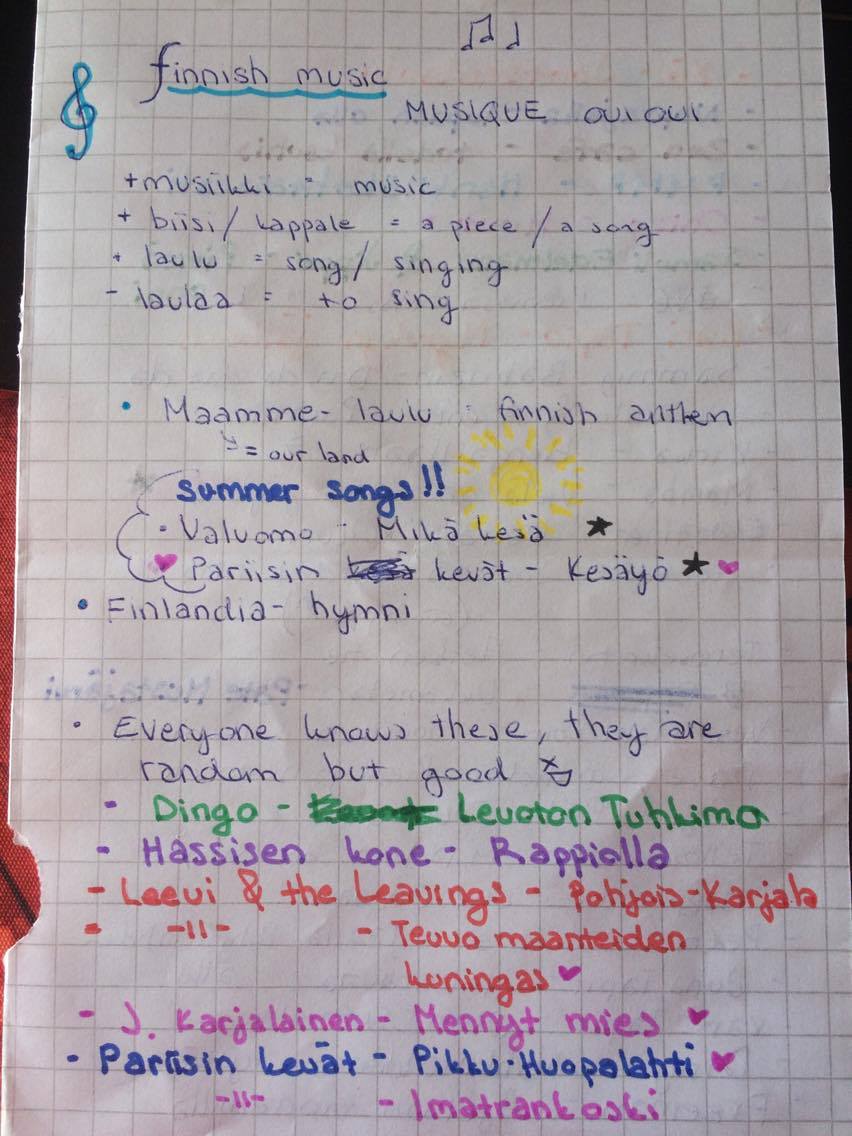 finnish music
MUSIQUE oui oui
+ musiikki = music
+ biisi / kappale = a piece / a song
+ laulu = song / singing
- laulaa = to sing
• Maamme-laulu = finnish anthem
= our land
summer songs!!
• Valvomo - Mikä kesä ★
♥ Pariisin kevät - Kesäyö ★ ♥
• Finlandia-hymni
• Everyone knows these, they are
random but good
- Dingo - Levoton Tuhkimo
- Hassisen kone - Rappiolla
- Leevi & the Leavings - Pohjois-Karjala
- -11- - Teuvo maanteiden
kuningas ♥
- J. Karjalainen - Mennyt mies ♥
- Pariisin kevät - Pikku-Huopalahti ♥
-11- - Imatrankoski